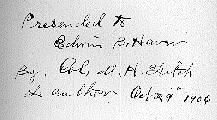 Presented to
Edwin B. Haven
By. Col. M. H.
the author. Oct 29" 1906